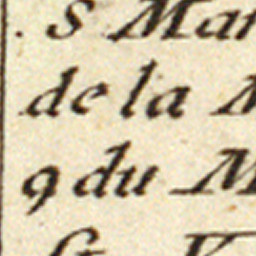 . S Mar
de la M
9 du M